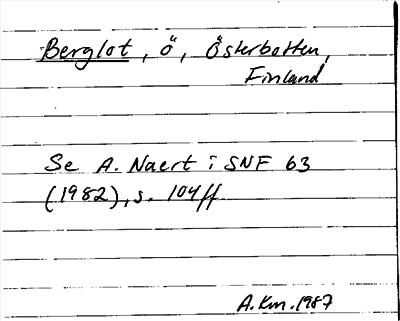 Berglot, ö, Österbotten,
Finland
Se A. Naert i SNF 63
(1982), s. 104ff
A.Km. 1987